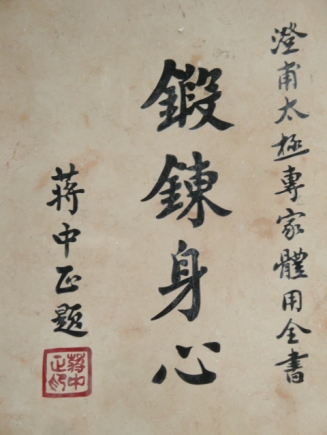 澄甫太極專家體用全書
鍛鍊身心
蔣中正題
蔣中正印